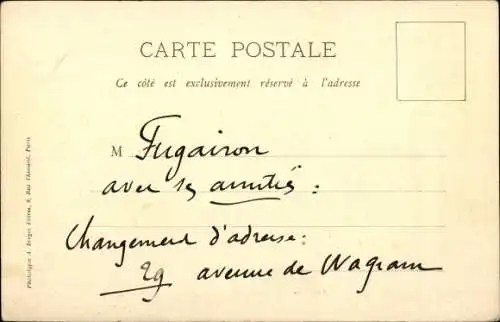 CARTE POSTALE
Ce côté est exclusivement réservé à l'adresse
M Fugairon
avec ses amitiés :
Changement d'adresse :
29 avenue de Wagram
Phototypie A. Bergeret Frères, 9, Rue Thénard, Paris